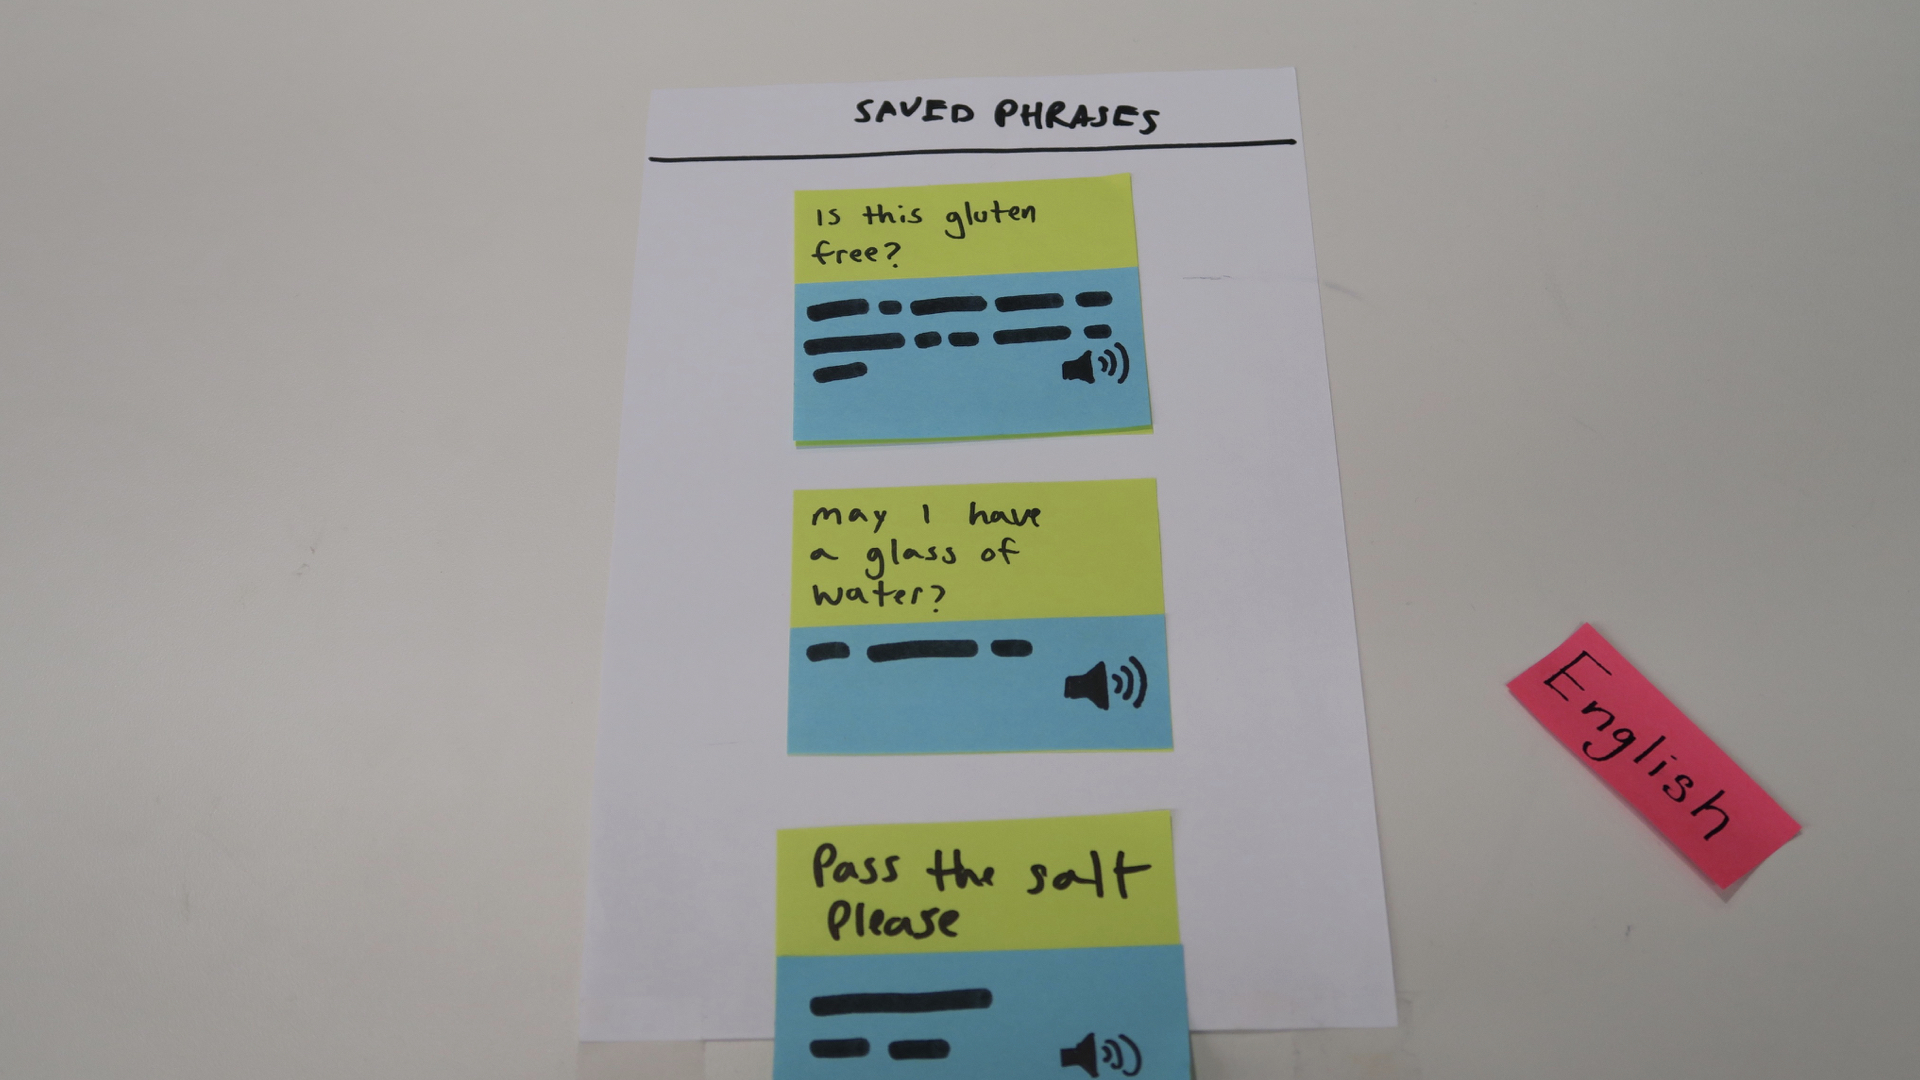 SAVED PHRASES
Is this gluten
free?
may I have
a glass of
water?
Pass the salt
Please
English